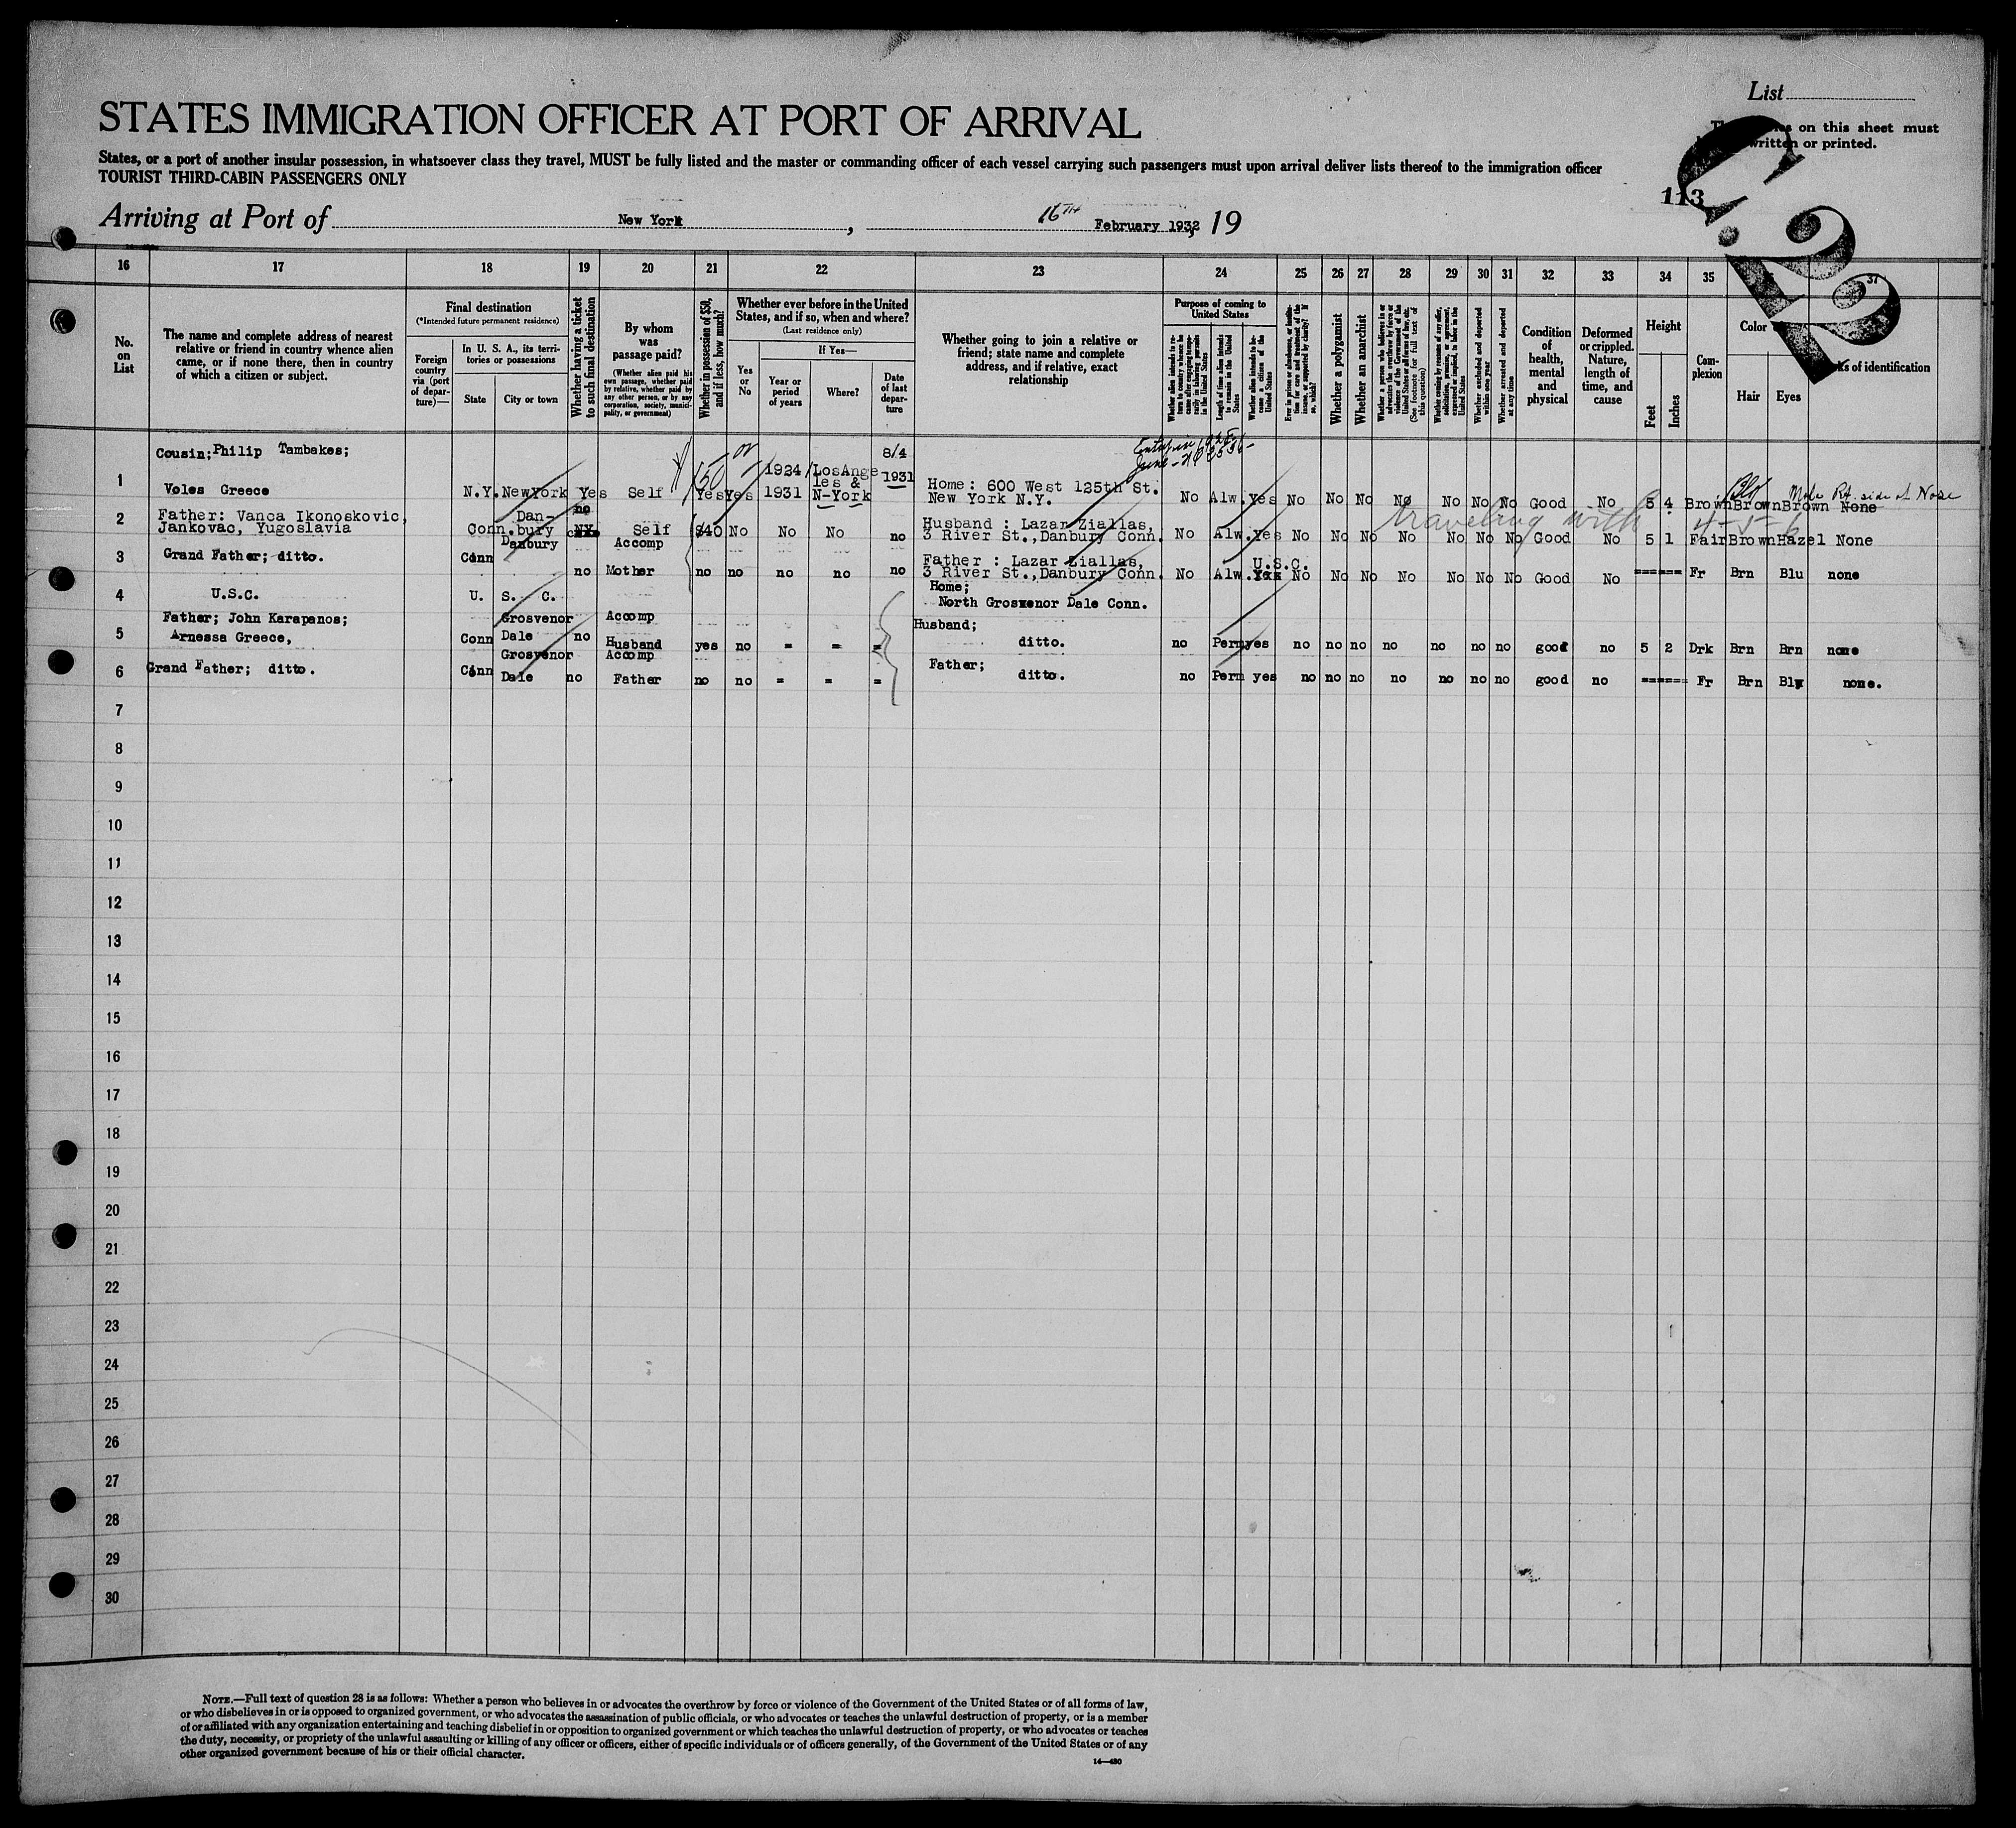 List
STATES IMMIGRATION OFFICER AT PORT OF ARRIVAL
on this sheet must
written or printed.
States, or a port of another insular possession, in whatsoever class they travel, MUST be fully listed and the master or commanding officer of each vessel carrying such passengers must upon arrival deliver lists thereof to the immigration officer
TOURIST THIRD-CABIN PASSENGERS ONLY
113
C.22
Arriving at Port of New York, 16TH February 1932, 19
16 17 18 19 20 21 22 23 24 25 26 27 28 29 30 31 32 33 34 35 37
No. on List
The name and complete address of nearest relative or friend in country whence alien came, or if none there, then in country of which a citizen or subject.
Final destination
(*Intended future permanent residence)
Foreign country via (port of departure)—
In U. S. A., its territories or possessions
State
City or town
Whether having a ticket to such final destination
By whom was passage paid?
(Whether alien paid his own passage, whether paid by relative, whether paid by any other person, or by any corporation, society, municipality, or government)
Whether in possession of $50, and if less, how much?
Whether ever before in the United States, and if so, when and where?
(Last residence only)
Yes or No
If Yes—
Year or period of years
Where?
Date of last departure
Whether going to join a relative or friend; state name and complete address, and if relative, exact relationship
Purpose of coming to United States
Whether alien intends to return to country whence he came after engaging temporarily in laboring pursuits in the United States
Length of time alien intends to remain in the United States
Whether alien intends to become a citizen of the United States
Ever in prison or almshouse, or institution for care and treatment of the insane, or supported by charity? If so, which?
Whether a polygamist
Whether an anarchist
Whether a person who believes in or advocates the overthrow by force or violence of the Government of the United States or all forms of law, etc. (See footnote for full text of this question)
Whether coming by reasons of any offer, solicitation, promise, or agreement, expressed or implied, to labor in the United States
Whether excluded and deported within one year
Whether arrested and deported at any time
Condition of health, mental and physical
Deformed or crippled. Nature, length of time, and cause
Height
Feet
Inches
Complexion
Color
Hair
Eyes
ks of identification
1 Cousin; Philip Tambakes;
Voles Greece N.Y. NewYork Yes Self 50 Yes Yes 1924/1931 LosAngeles & N-York 8/4 1931 Home: 600 West 125th St. New York N.Y. No Alw. Yes No No No No No No No Good No 5 4 Brown Brown Brown None
Mole Rt. side of Nose
2 Father: Vanca Ikonoskovic,
Jankovac, Yugoslavia Conn. Dan-bury no Self $40 No No No no Husband : Lazar Ziallas, 3 River St.,Danbury Conn. No Alw. Yes No No No No No No No Good No 5 1 Fair Brown Hazel None
traveling with 4-5-6
3 Grand Father; ditto. Conn Danbury no Accomp Mother no no no no no Father : Lazar Ziallas, 3 River St.,Danbury Conn. No Alw. U.S.C. No No No No No No No Good No ====== Fr Brn Blu none
4 U.S.C. U. S. C. Home;
North Grosvenor Dale Conn.
5 Father; John Karapanos;
Arnessa Greece, Conn Grosvenor Dale no Accomp Husband yes no = = = Husband; ditto. no Perm yes no no no no no no no good no 5 2 Drk Brn Brn none
6 Grand Father; ditto. Conn Grosvenor Dale no Accomp Father no no = = = Father; ditto. no Perm yes no no no no no no no good no ====== Fr Brn Blu none.
7
8
9
10
11
12
13
14
15
16
17
18
19
20
21
22
23
24
25
26
27
28
29
30
NOTE.—Full text of question 28 is as follows: Whether a person who believes in or advocates the overthrow by force or violence of the Government of the United States or of all forms of law,
or who disbelieves in or is opposed to organized government, or who advocates the assassination of public officials, or who advocates or teaches the unlawful destruction of property, or is a member
of or affiliated with any organization entertaining and teaching disbelief in or opposition to organized government or which teaches the unlawful destruction of property, or who advocates or teaches
the duty, necessity, or propriety of the unlawful assaulting or killing of any officer or officers, either of specific individuals or of officers generally, of the Government of the United States or of any
other organized government because of his or their official character.
14—430